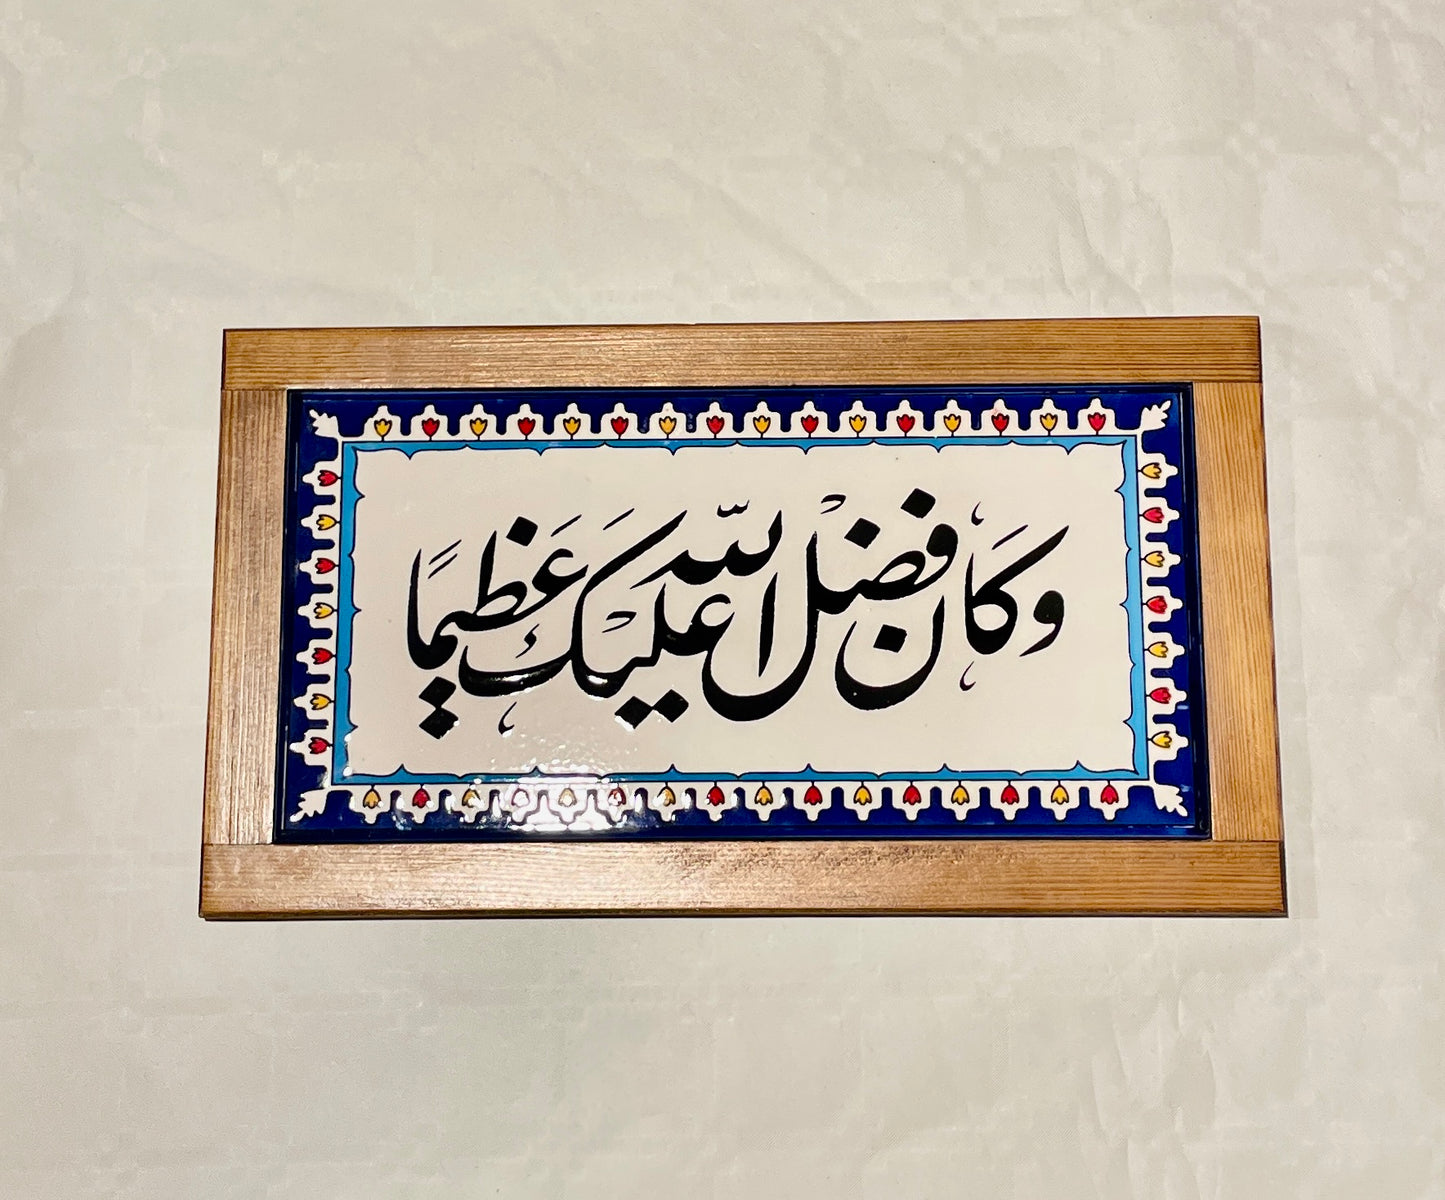 وكان فضل الله عليك عظيمًا